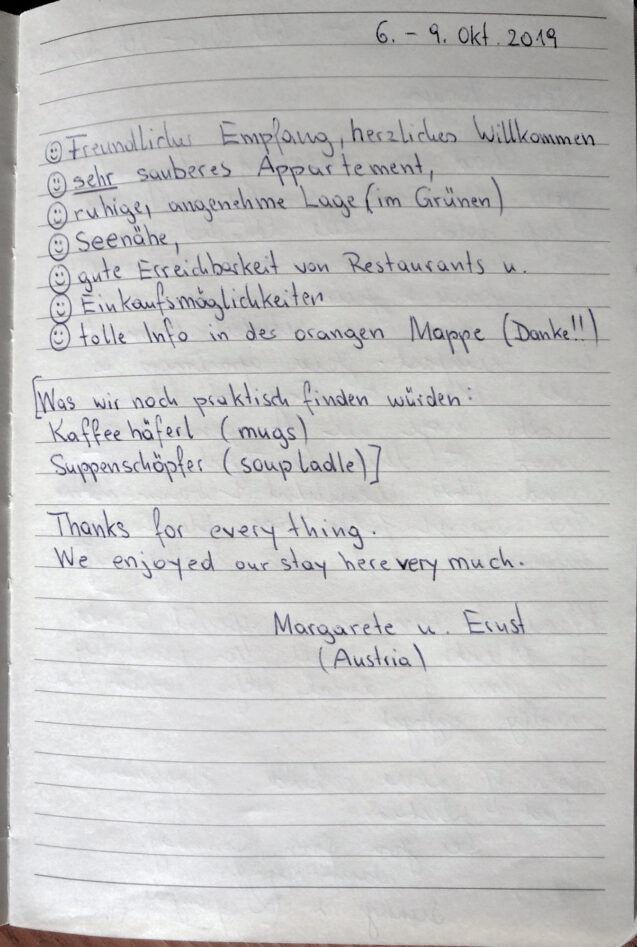 6. – 9. Okt. 2019
☺ Freundlicher Empfang, herzliches Willkommen
☺ sehr sauberes Appartement,
☺ ruhige, angenehme Lage (im Grünen)
☺ Seenähe,
☺ gute Erreichbarkeit von Restaurants u.
☺ Einkaufsmöglichkeiten
☺ tolle Info in der orangen Mappe (Danke!!)
[Was wir noch praktisch finden würden:
Kaffeehäferl (mugs)
Suppenschöpfer (soup ladle)]
Thanks for everything.
We enjoyed our stay here very much.
Margarete u. Ernst
(Austria)